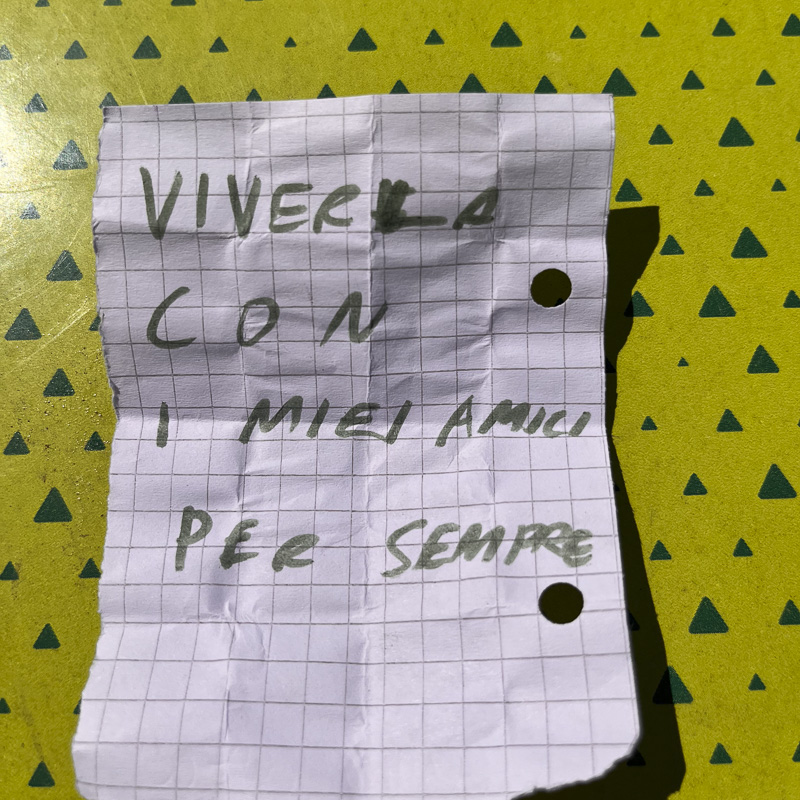 VIVERLA
CON
I MIEI AMICI
PER SEMPRE